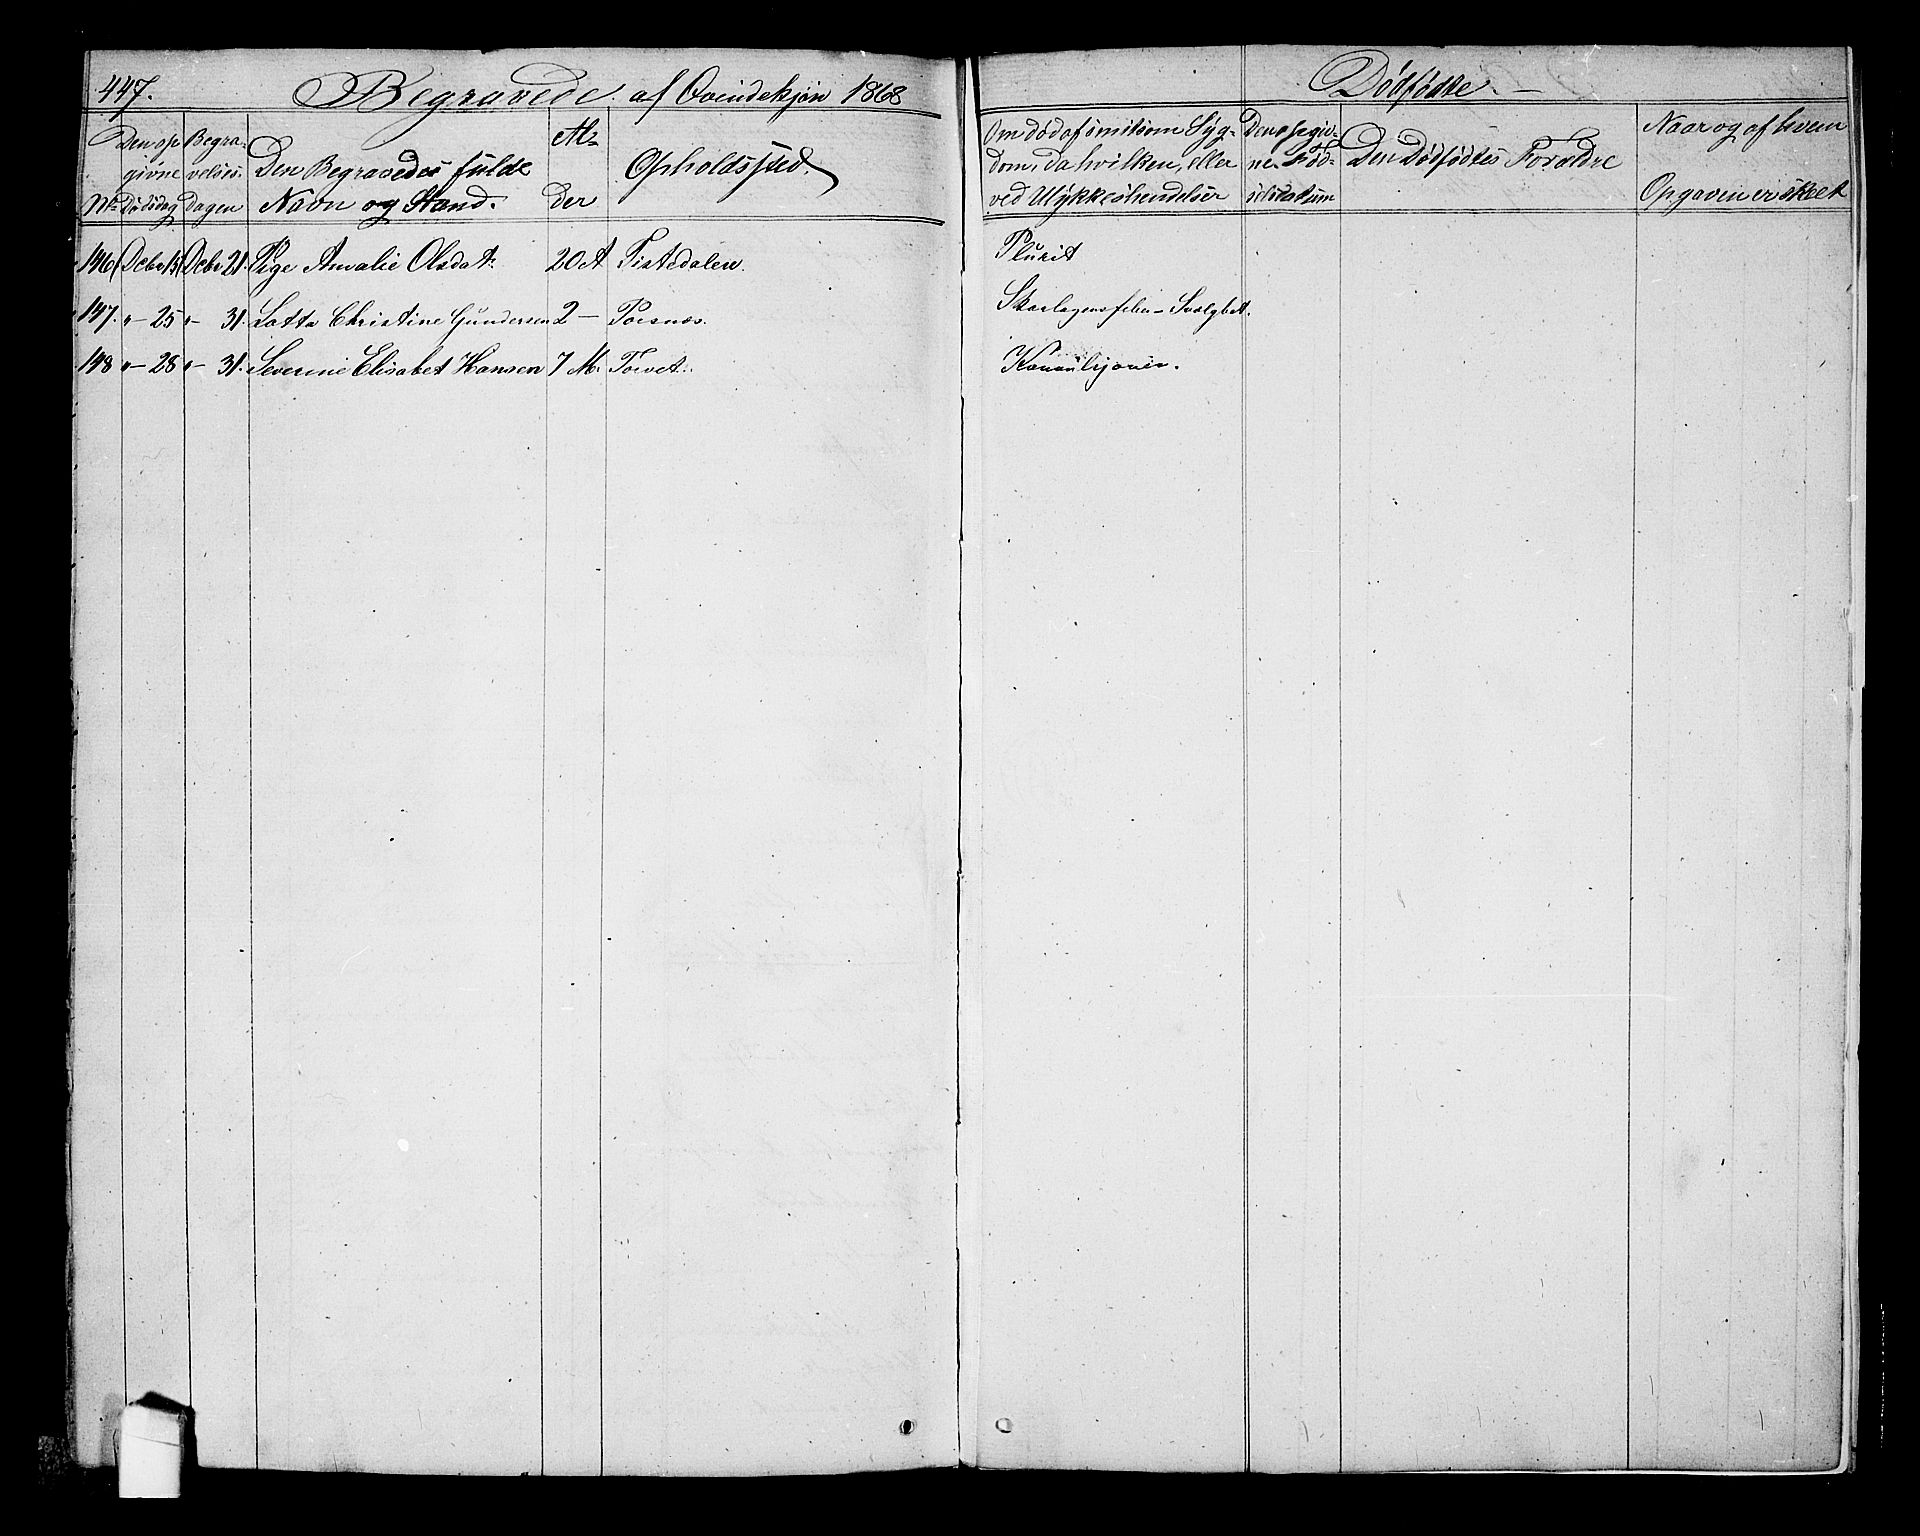 447. Begravede af Qvindekjøn 1868
Dødfødte.
No
Den op
givne
Dødsdag
Begra-
velses
Dagen
Den Begravedes fulde
Navn og Stand.
Al-
der
Opholdssted.
Om død af smitsom Syg-
dom, da hvilken, eller
ved Ulykkeshendelser
Den opgiv-
ne Fød-
selsdatum
Den Dødfødtes Forældre
Naar og af hvem
Opgaven er skeet
146 Decbr 15 Decbr 21. Pige Amalie Olsdat: 20 A Tistedalen. Plurit
147. "- 25 "- 31. Lotta Christine Gundersen 2 - Poesnæs. Skarlagensfeber - Svælgbet.
148 "- 28 "- 31. Severine Elisabet Hansen 7 M. Torvet.